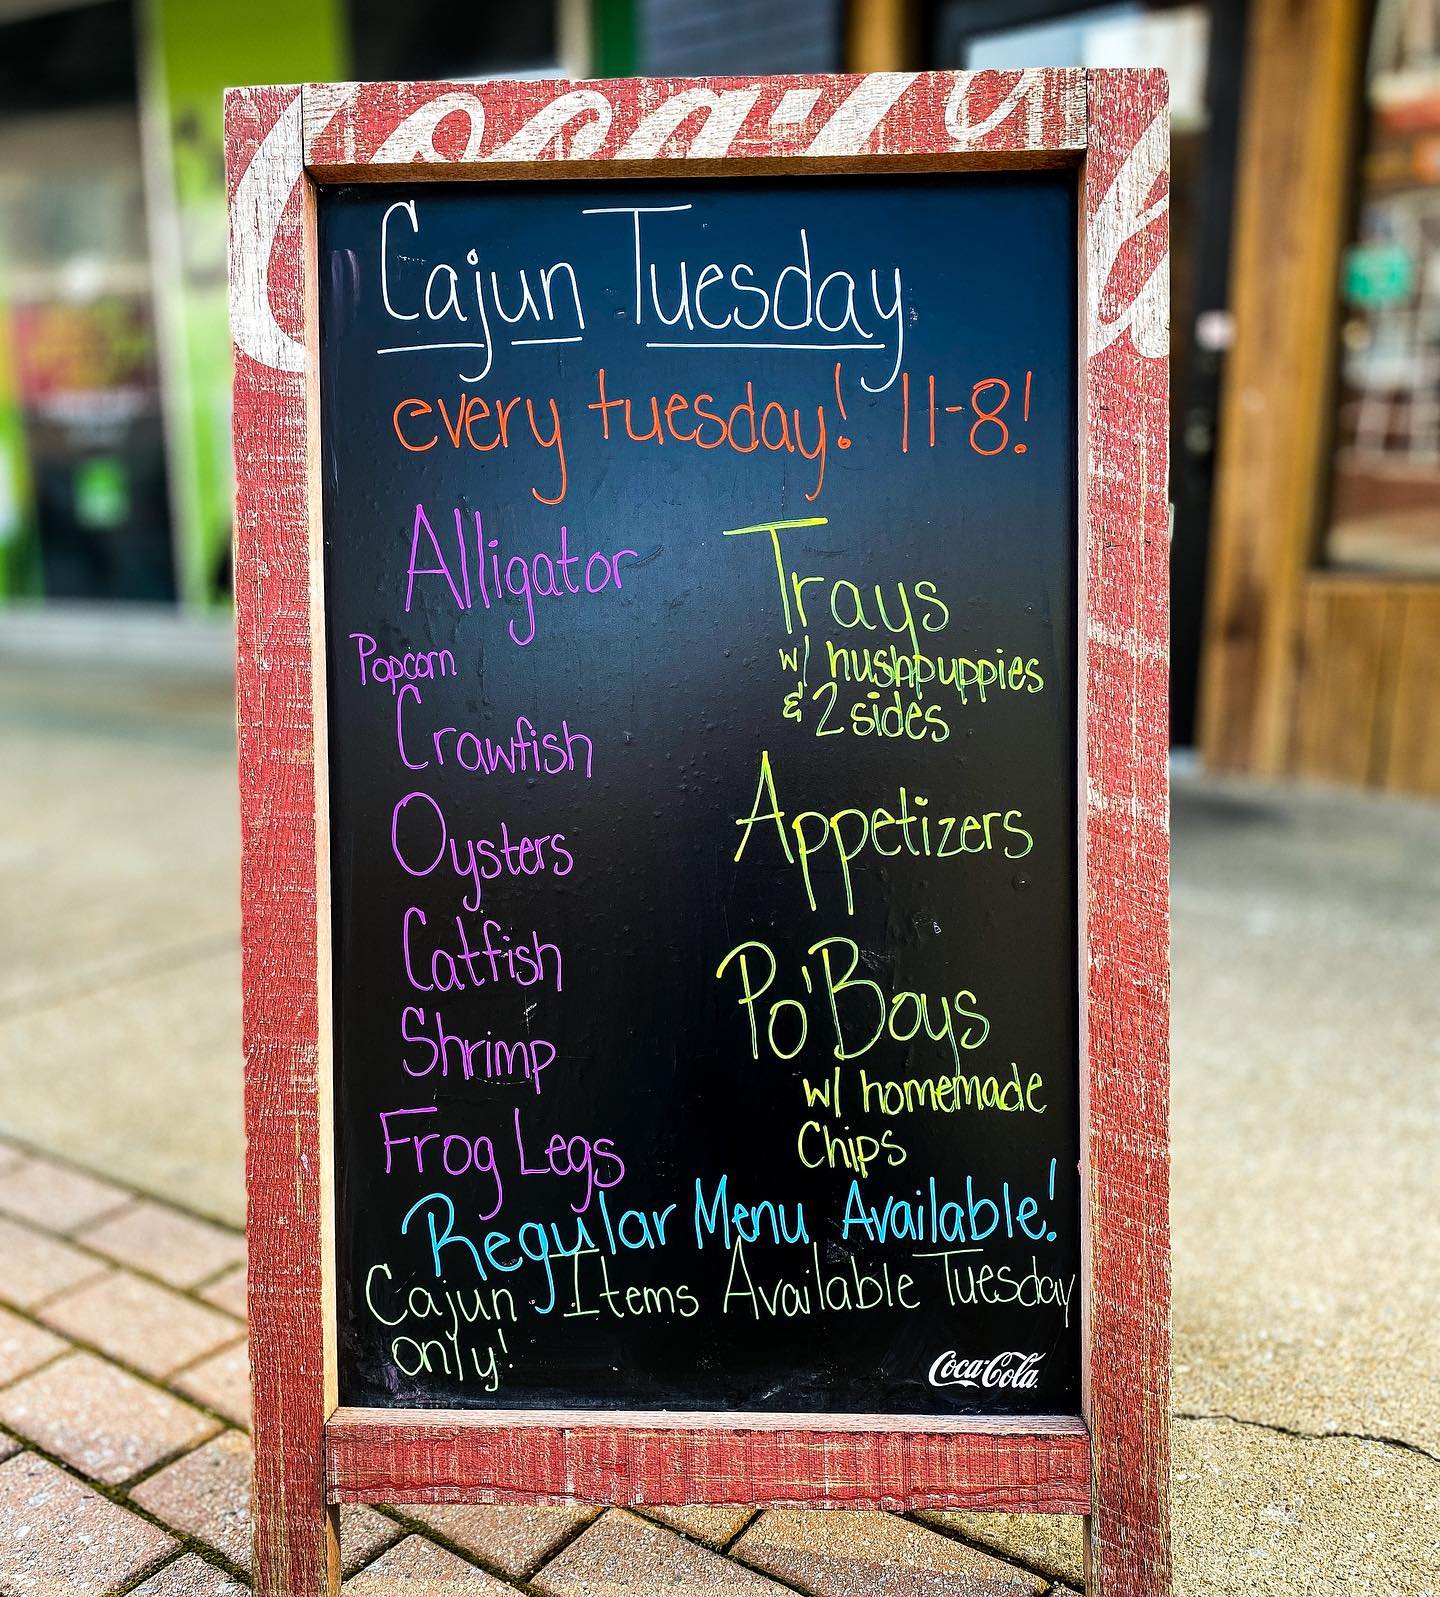 Coca-Cola
Cajun Tuesday
every tuesday! 11-8!
Alligator
Popcorn
Crawfish
Oysters
Catfish
Shrimp
Frog Legs
Trays
w/ hushpuppies
& 2 sides
Appetizers
Po'Boys
w/ homemade
Chips
Regular Menu Available!
Cajun Items Available Tuesday
only!
Coca-Cola